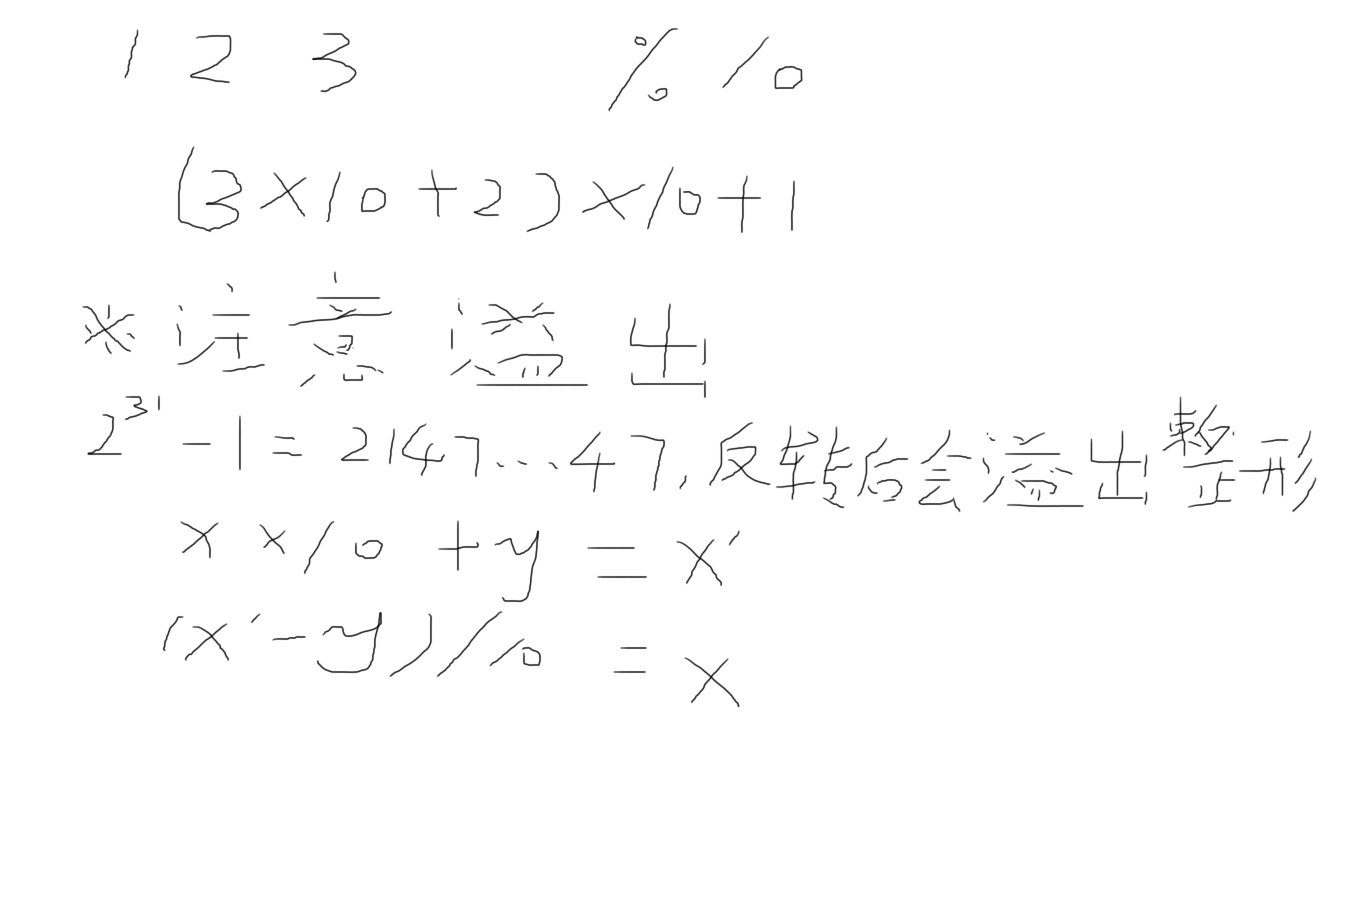 1 2 3 % 10
(3×10+2)×10+1
※注意溢出
2³¹-1=2147...47,反转后会溢出整形
x×10+y=x'
(x'-y)/10=x